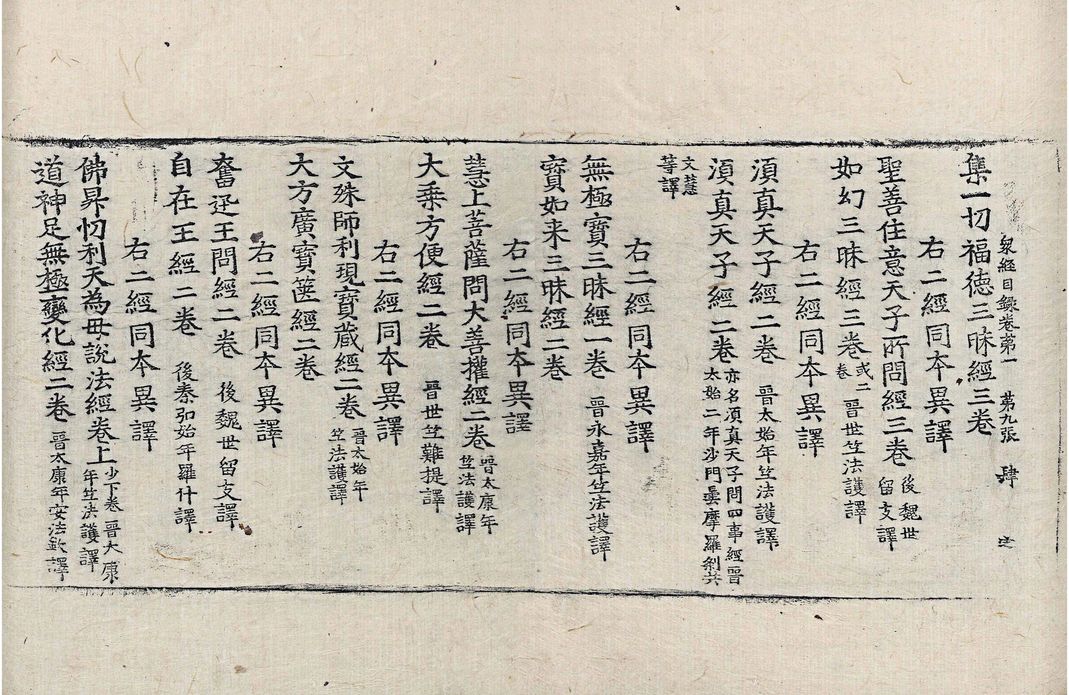 衆經目録卷第一　第九張　肆
集一切福徳三昧經三卷
右二經同本異譯
聖善住意天子所問經三卷 後魏世留支譯
如幻三昧經三卷 或二卷 晉世竺法護譯
右二經同本異譯
須真天子經二卷 晉太始年竺法護譯
須真天子經二卷 亦名須真天子問四事經晉太始二年沙門曇摩羅刹共
文慧等譯
右二經同本異譯
無極寶三昧經一卷 晉永嘉年竺法護譯
寶如来三昧經二卷
右二經同本異譯
慧上菩薩問大善權經二卷 晉太康年竺法護譯
大乗方便經二卷 晉世竺難提譯
右二經同本異譯
文殊師利現寶蔵經二卷 晉太始年竺法護譯
大方廣寶篋經二卷
右二經同本異譯
奮迅王問經二卷 後魏世留支譯
自在王經二卷 後秦弘始年羅什譯
右二經同本異譯
佛昇忉利天為母說法經卷上 少下卷晉大康年竺法護譯
道神足無極變化經二卷 晉太康年安法欽譯